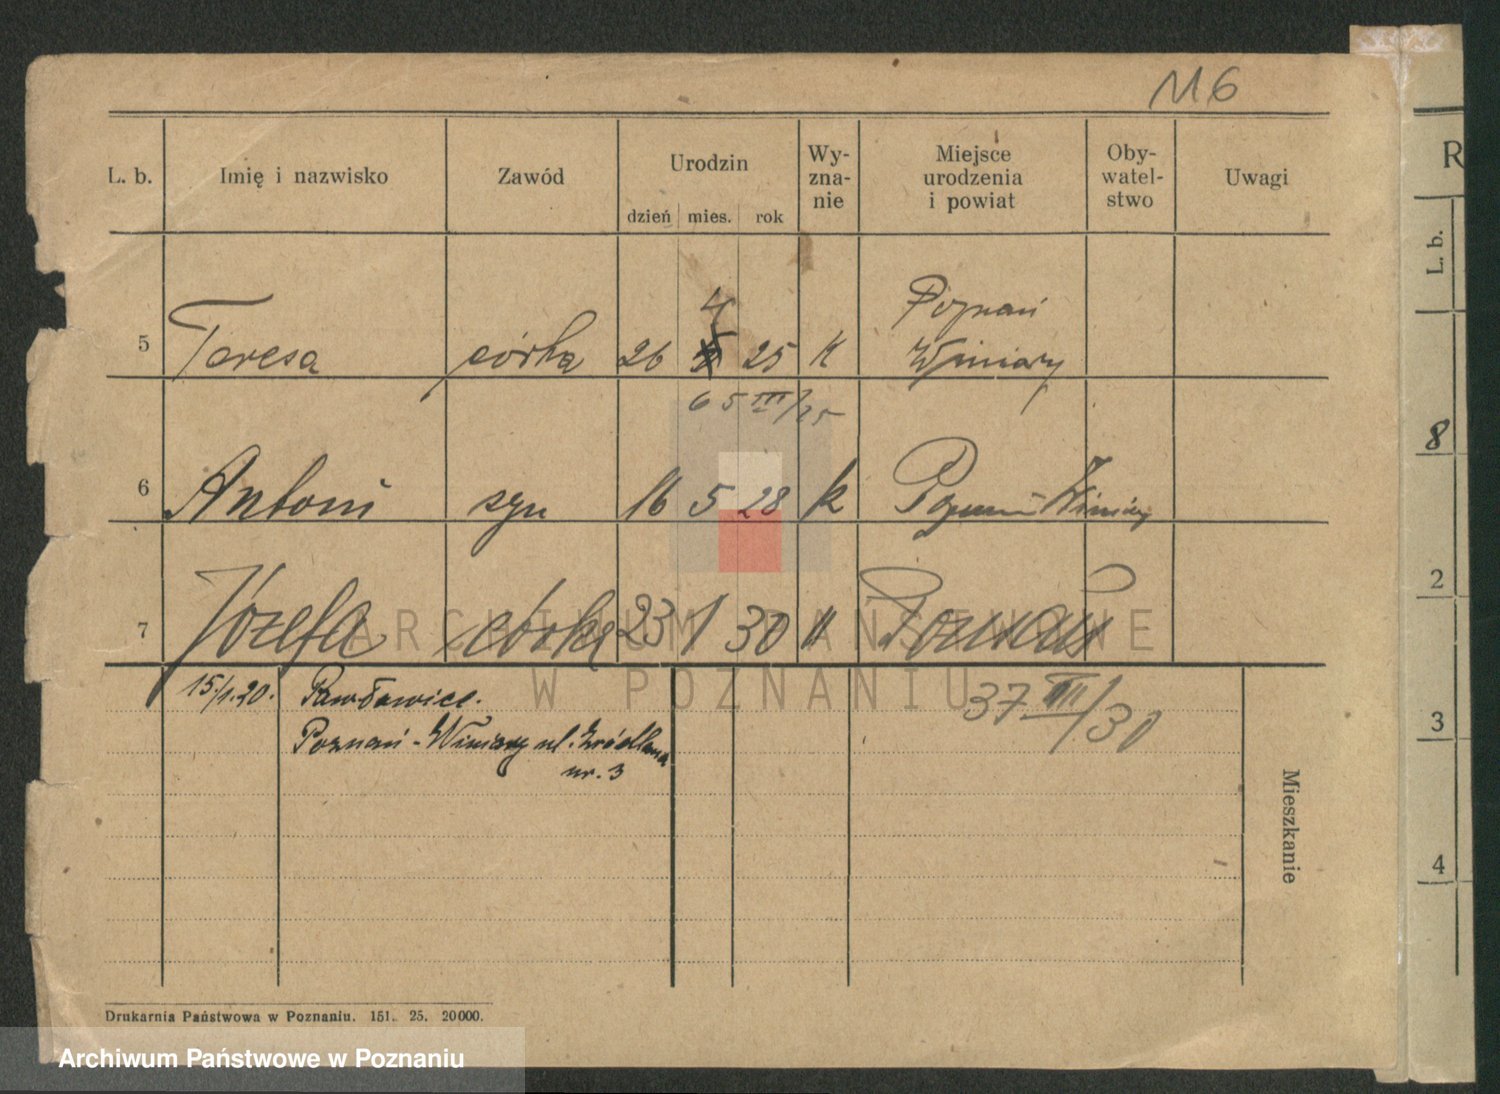 116
L. b. Imię i nazwisko Zawód Urodzin Wy-zna-nie Miejsce urodzenia i powiat Oby-watel-stwo Uwagi
dzień mies. rok
5 Teresa córka 26 4 25 k Poznań
Winiary
65 III/25
6 Antoni syn 16 5 28 k Poznań - Winiary
7 Józefa córka 23 1 30 k Poznań
15./1.20. Pawłowice.
37 III/30
Poznań - Winiary ul. Źródlana
nr. 3
Mieszkanie
Drukarnia Państwowa w Poznaniu. 151. 25. 20000.
ARCHIWUM PAŃSTWOWE
W POZNANIU
Archiwum Państwowe w Poznaniu
R
L. b.
8
2
3
4